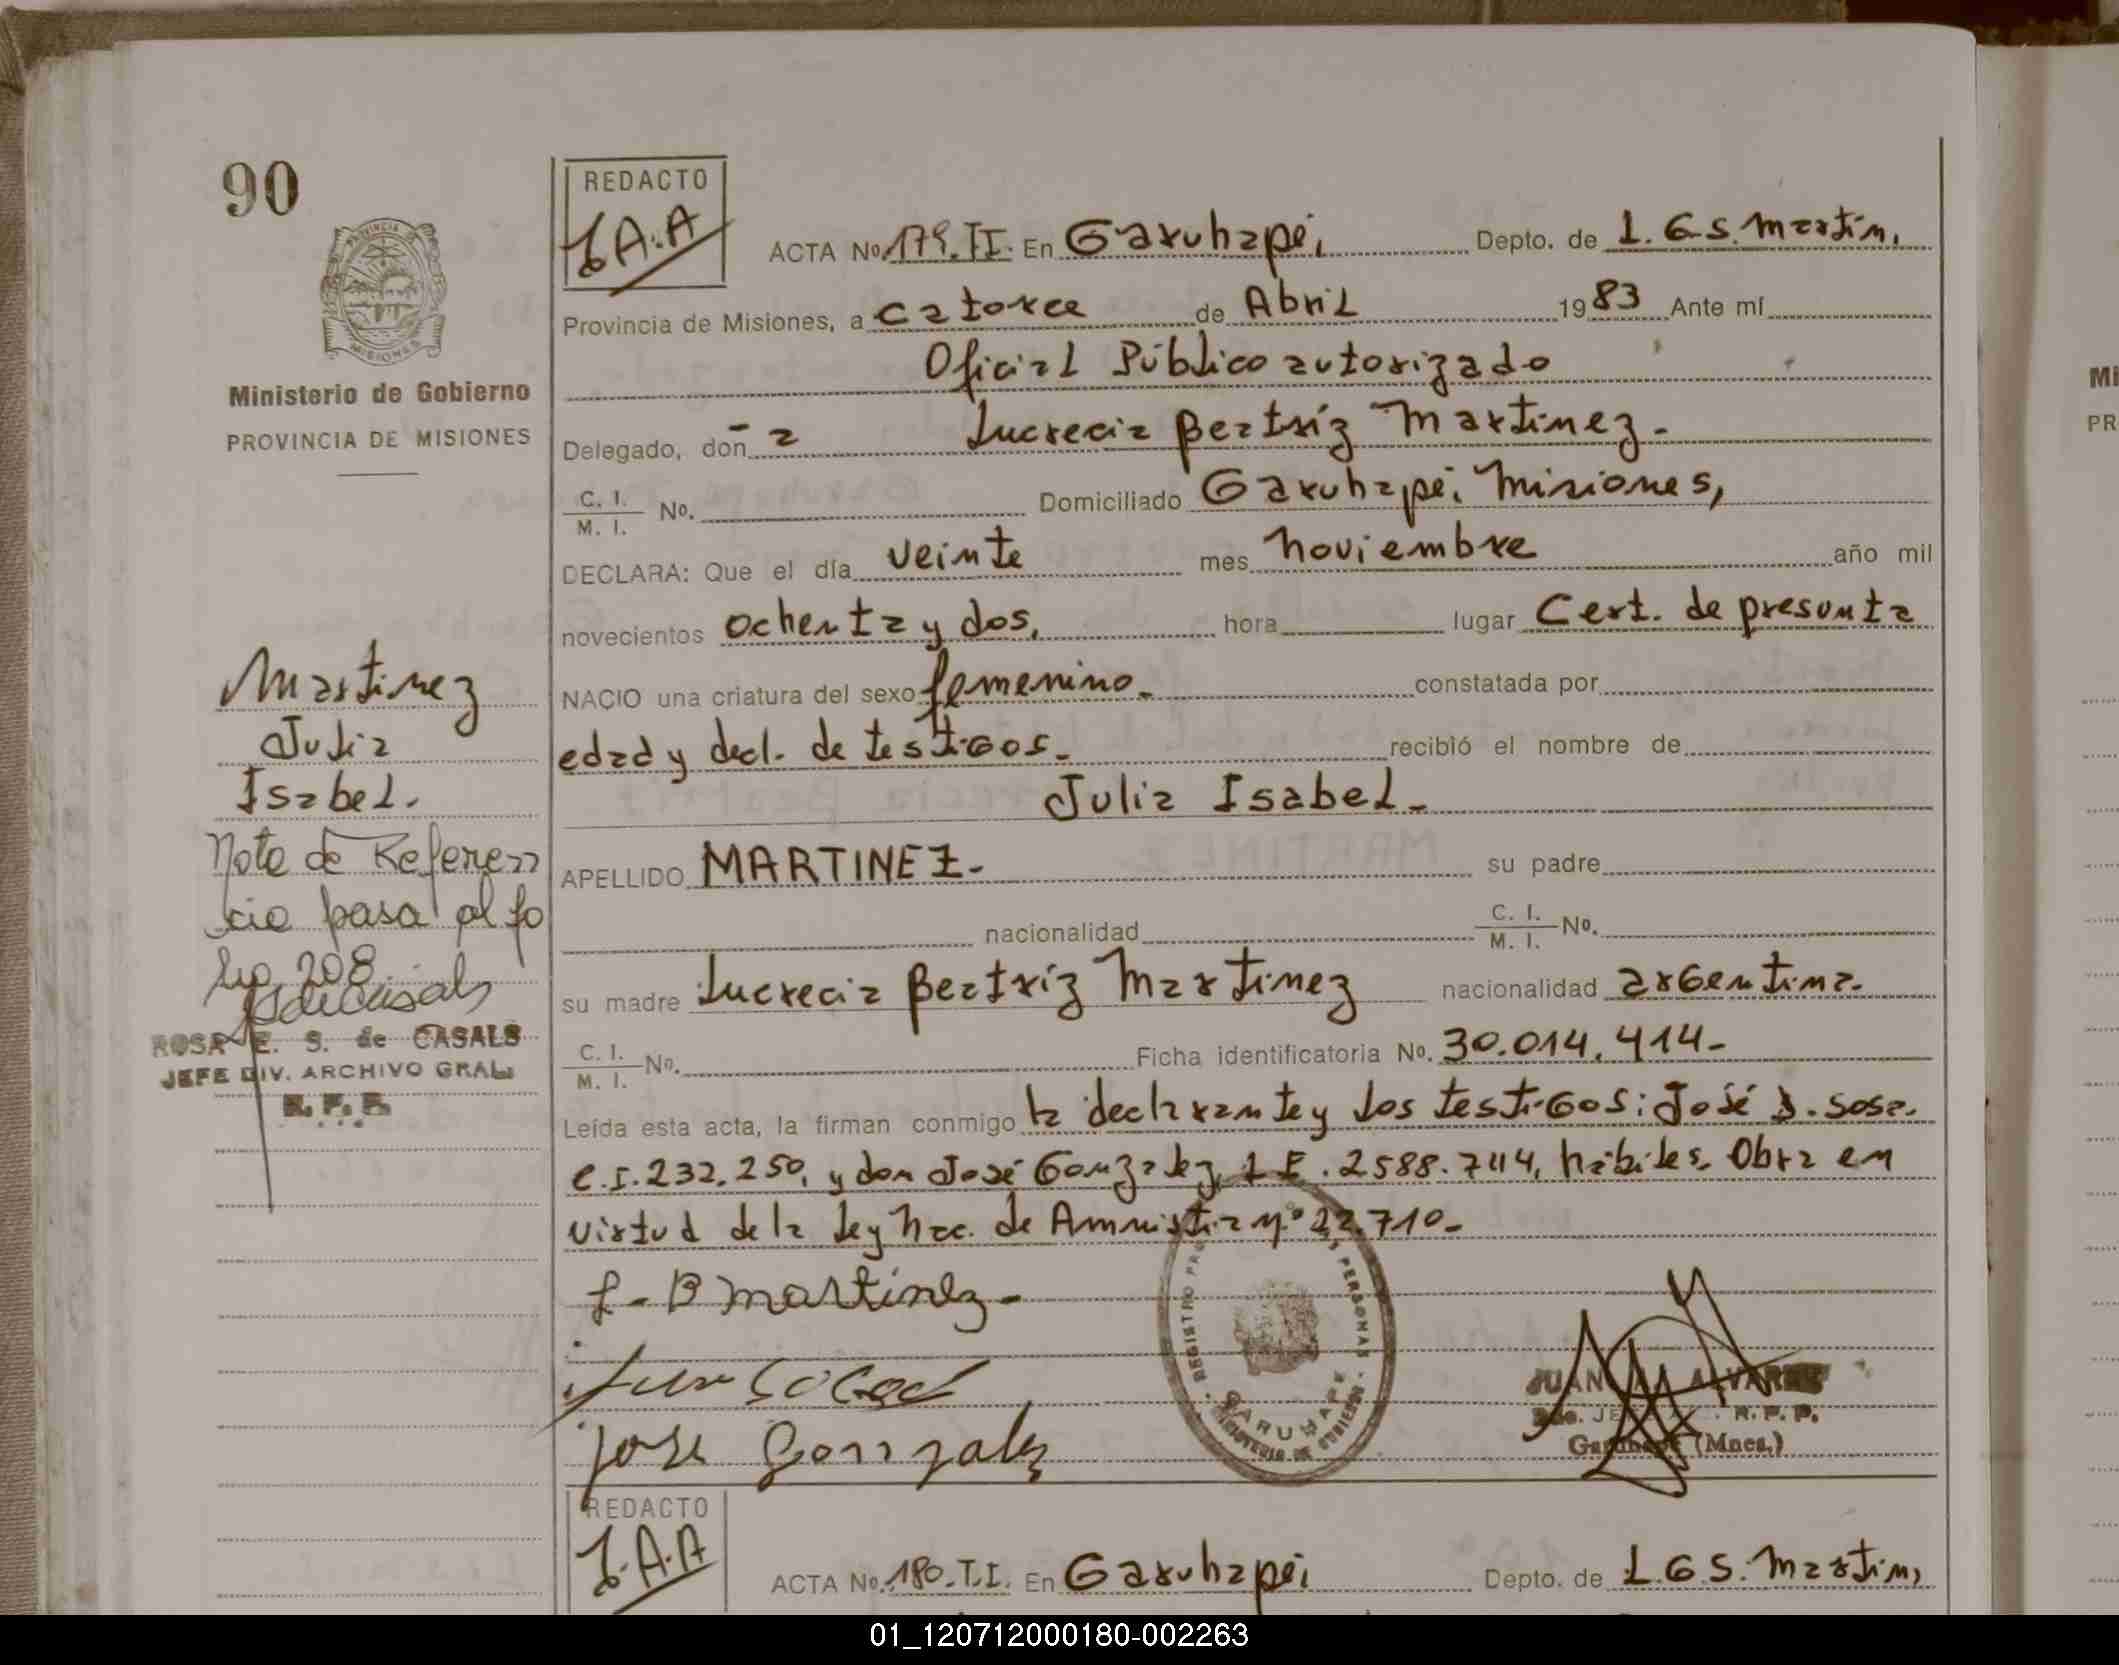 90
PROVINCIA DE
MISIONES
Ministerio de Gobierno
PROVINCIA DE MISIONES
Martinez
Julia
Isabel.
Nota de Referen
cia pasa al fo
lio 208
ROSA E. S. de CASALS
JEFE DIV. ARCHIVO GRAL.
R. P. P.
REDACTO
J.A.A
ACTA No. 179. T I. En Garuhapé, Depto. de L. G. S. Martín,
Provincia de Misiones, a catorce de Abril 1983 Ante mí
Oficial Público autorizado
Delegado, don a Lucrecia Beatríz Martinez.
C. I.
M. I. No. Domiciliado Garuhapé, Misiones,
DECLARA: Que el día veinte mes noviembre año mil
novecientos ochenta y dos, hora lugar Cert. de presunta
NACIO una criatura del sexo femenino. constatada por
edad y decl. de testigos. recibió el nombre de
Julia Isabel.
APELLIDO MARTINEZ. su padre
nacionalidad C. I.
M. I. No.
su madre Lucrecia Beatríz Martinez nacionalidad argentina.
C. I.
M. I. No. Ficha identificatoria No. 30.014.414-
Leída esta acta, la firman conmigo la declarante y los testigos: José Sosa.
C.I. 232.250, y don José Gonzalez, L E. 2588.744, hábiles. Obra en
virtud de la Ley Nac. de Amnistia nº 22.710-
L-B Martinez-
Jose Gonzalez
REGISTRO PERSONAS
GARUHAPE
MINISTERIO DE GOBIERNO
JUAN ALVAREZ
R. P. P.
Garuhapé (Mnes.)
REDACTO
J.A.A
ACTA No. 180. T. I. En Garuhapé, Depto. de L. G. S. Martín,
Mi
PR
01_120712000180-002263